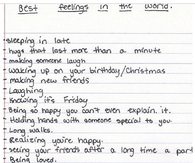 Best feelings in the world.
Sleeping in late
hugs that last more than a minute
making someone laugh
waking up on your birthday/Christmas
making new friends
Laughing
knowing it's Friday
Being so happy you can't even explain it.
Holding hands with someone special to you.
Long walks.
Realizing you're happy.
seeing your friends after a long time a part
Being loved.